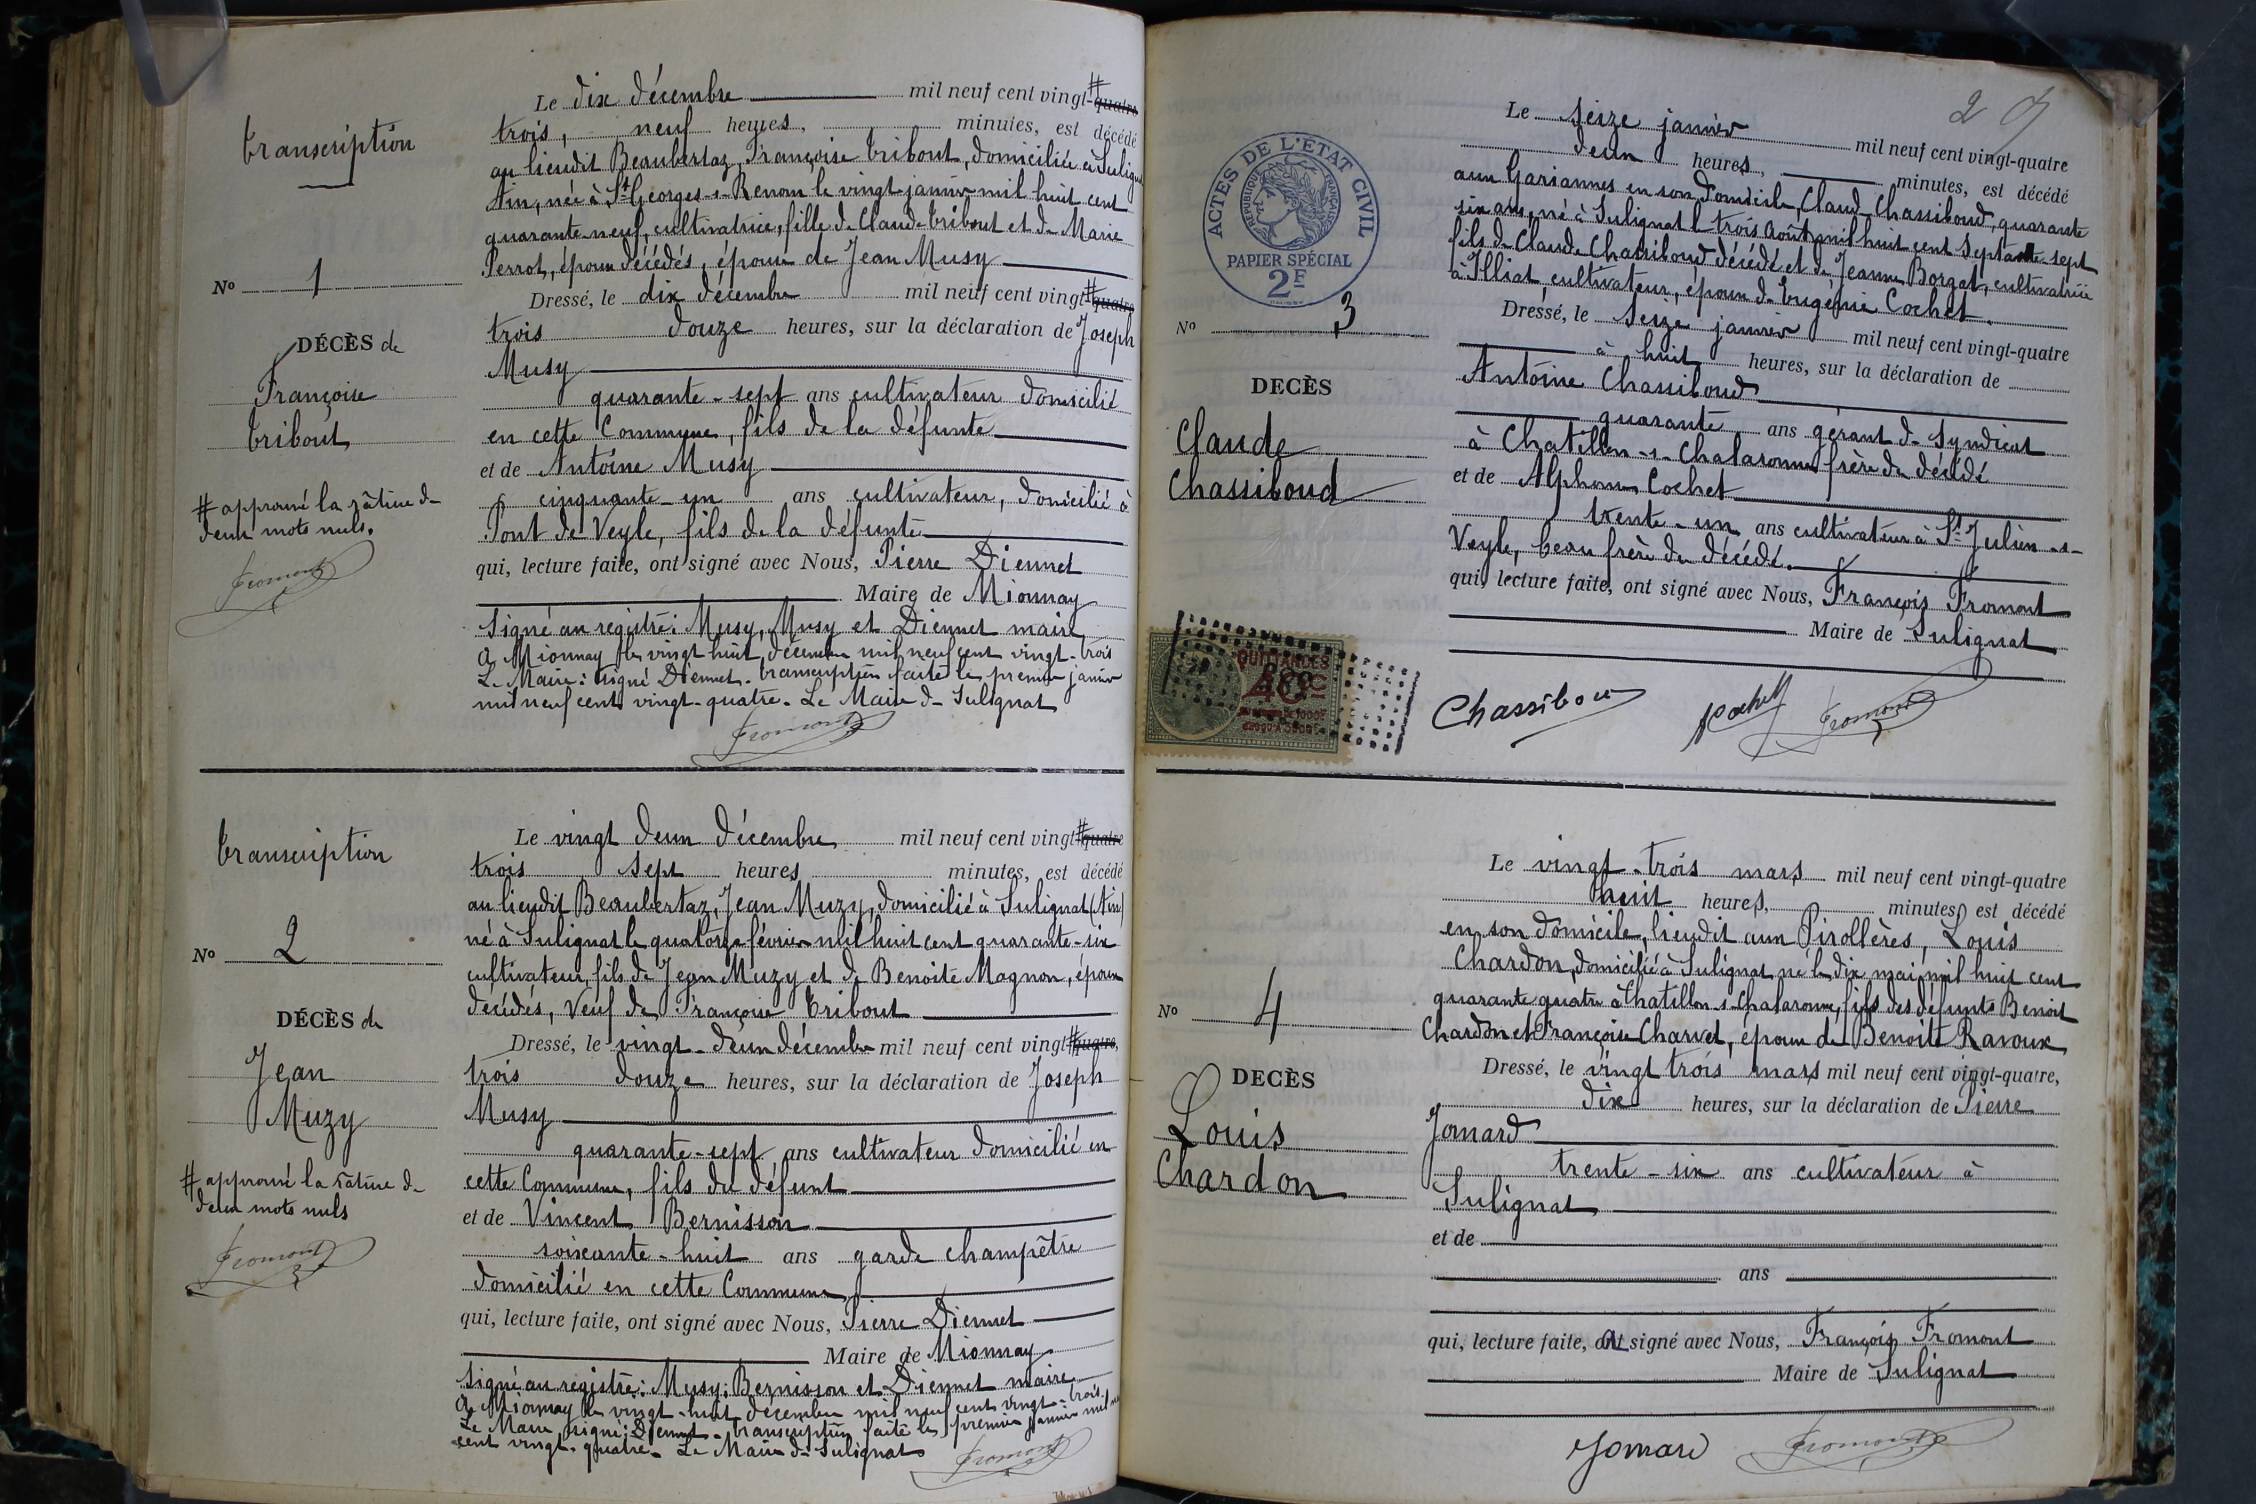 transcription
No 1
DÉCÈS de
Françoise
Tribout
# approuvé la râture de
deux mots nuls.
Fromont
Le dix décembre mil neuf cent vingt-# quatre
trois, neuf heures, minutes, est décédé
au lieudit Beaubertaz, Françoise Tribout, domiciliée à Sulignat
Ain, née à St Georges-s-Renom le vingt janvier mil huit cent
quarante-neuf, cultivatrice, fille de Claude Tribout et de Marie
Perrot, époux décédés, épouse de Jean Musy
Dressé, le dix décembre mil neuf cent vingt # quatre
trois douze heures, sur la déclaration de Joseph
Musy
quarante-sept ans cultivateur domicilié
en cette Commune, fils de la défunte
et de Antoine Musy
cinquante-un ans cultivateur, domicilié à
Pont de Veyle, fils de la défunte
qui, lecture faite, ont signé avec Nous, Pierre Diennet
Maire de Mionnay
Signé au registre: Musy, Musy et Diennet maire
A Mionnay le vingt-huit décembre mil neuf cent vingt-trois
Le Maire: signé Diennet. transcription faite le premier janvier
mil neuf cent vingt-quatre. Le Maire de Sulignat
Fromont
transcription
No 2
DÉCÈS de
Jean
Muzy
# approuvé la râture de
deux mots nuls
Fromont
Le vingt deux décembre mil neuf cent vingt # quatre
trois sept heures minutes, est décédé
au lieudit Beaubertaz, Jean Muzy, domicilié à Sulignat (Ain)
né à Sulignat le quatorze février mil huit cent quarante-six
cultivateur, fils de Jean Muzy et de Benoite Magnon, époux
décédés, Veuf de Françoise Tribout
Dressé, le vingt-deux décembre mil neuf cent vingt # quatre,
trois douze heures, sur la déclaration de Joseph
Musy
quarante-sept ans cultivateur domicilié en
cette Commune, fils du défunt
et de Vincent Bernisson
soixante-huit ans garde champêtre
domicilié en cette Commune,
qui, lecture faite, ont signé avec Nous, Pierre Diennet
Maire de Mionnay
Signé au registre: Musy; Bernisson et Diennet maire
A Mionnay le vingt-huit décembre mil neuf cent vingt-trois.
Le Maire signé: Diennet. transcription faite le premier janvier mil neuf
cent vingt-quatre. Le Maire de Sulignat
Fromont
2
ACTES DE L'ETAT CIVIL
REPUBLIQUE FRANÇAISE
PAPIER SPÉCIAL
2F
No 3
DECÈS
Claude
Chassiboud
Le seize janvier mil neuf cent vingt-quatre
deux heures, minutes, est décédé
aux Gariannes en son domicile, Claude Chassiboud, quarante
six ans, né à Sulignat le trois août mil huit cent septante-sept
fils de Claude Chassiboud décédé et de Jeanne Borgat, cultivatrice
à Illiat, cultivateur, époux de Eugénie Cochet.
Dressé, le seize janvier mil neuf cent vingt-quatre
à huit heures, sur la déclaration de
Antoine Chassiboud
quarante ans gérant de Syndicat
à Chatillon-s-Chalaronne frère du décédé
et de Alphonse Cochet
trente-un ans cultivateur à St Julien-s-
Veyle, beau frère du décédé.
qui, lecture faite, ont signé avec Nous, François Fromont
Maire de Sulignat
QUITTANCES
Chassiboud
A Cochet
Fromont
No 4
DECÈS
Louis
Chardon
Le vingt-trois mars mil neuf cent vingt-quatre
huit heures, minutes, est décédé
en son domicile, lieudit aux Pirollères, Louis
Chardon, domicilié à Sulignat, né le dix mai mil huit cent
quarante quatre à Chatillon-s-Chalaronne, fils des défunts Benoit
Chardon et Françoise Charvet, époux de Benoite Ravoux
Dressé, le vingt trois mars mil neuf cent vingt-quatre,
dix heures, sur la déclaration de Pierre
Jomard
trente-six ans cultivateur à
Sulignat
et de
ans
qui, lecture faite, a signé avec Nous, François Fromont
Maire de Sulignat
Jomard
Fromont